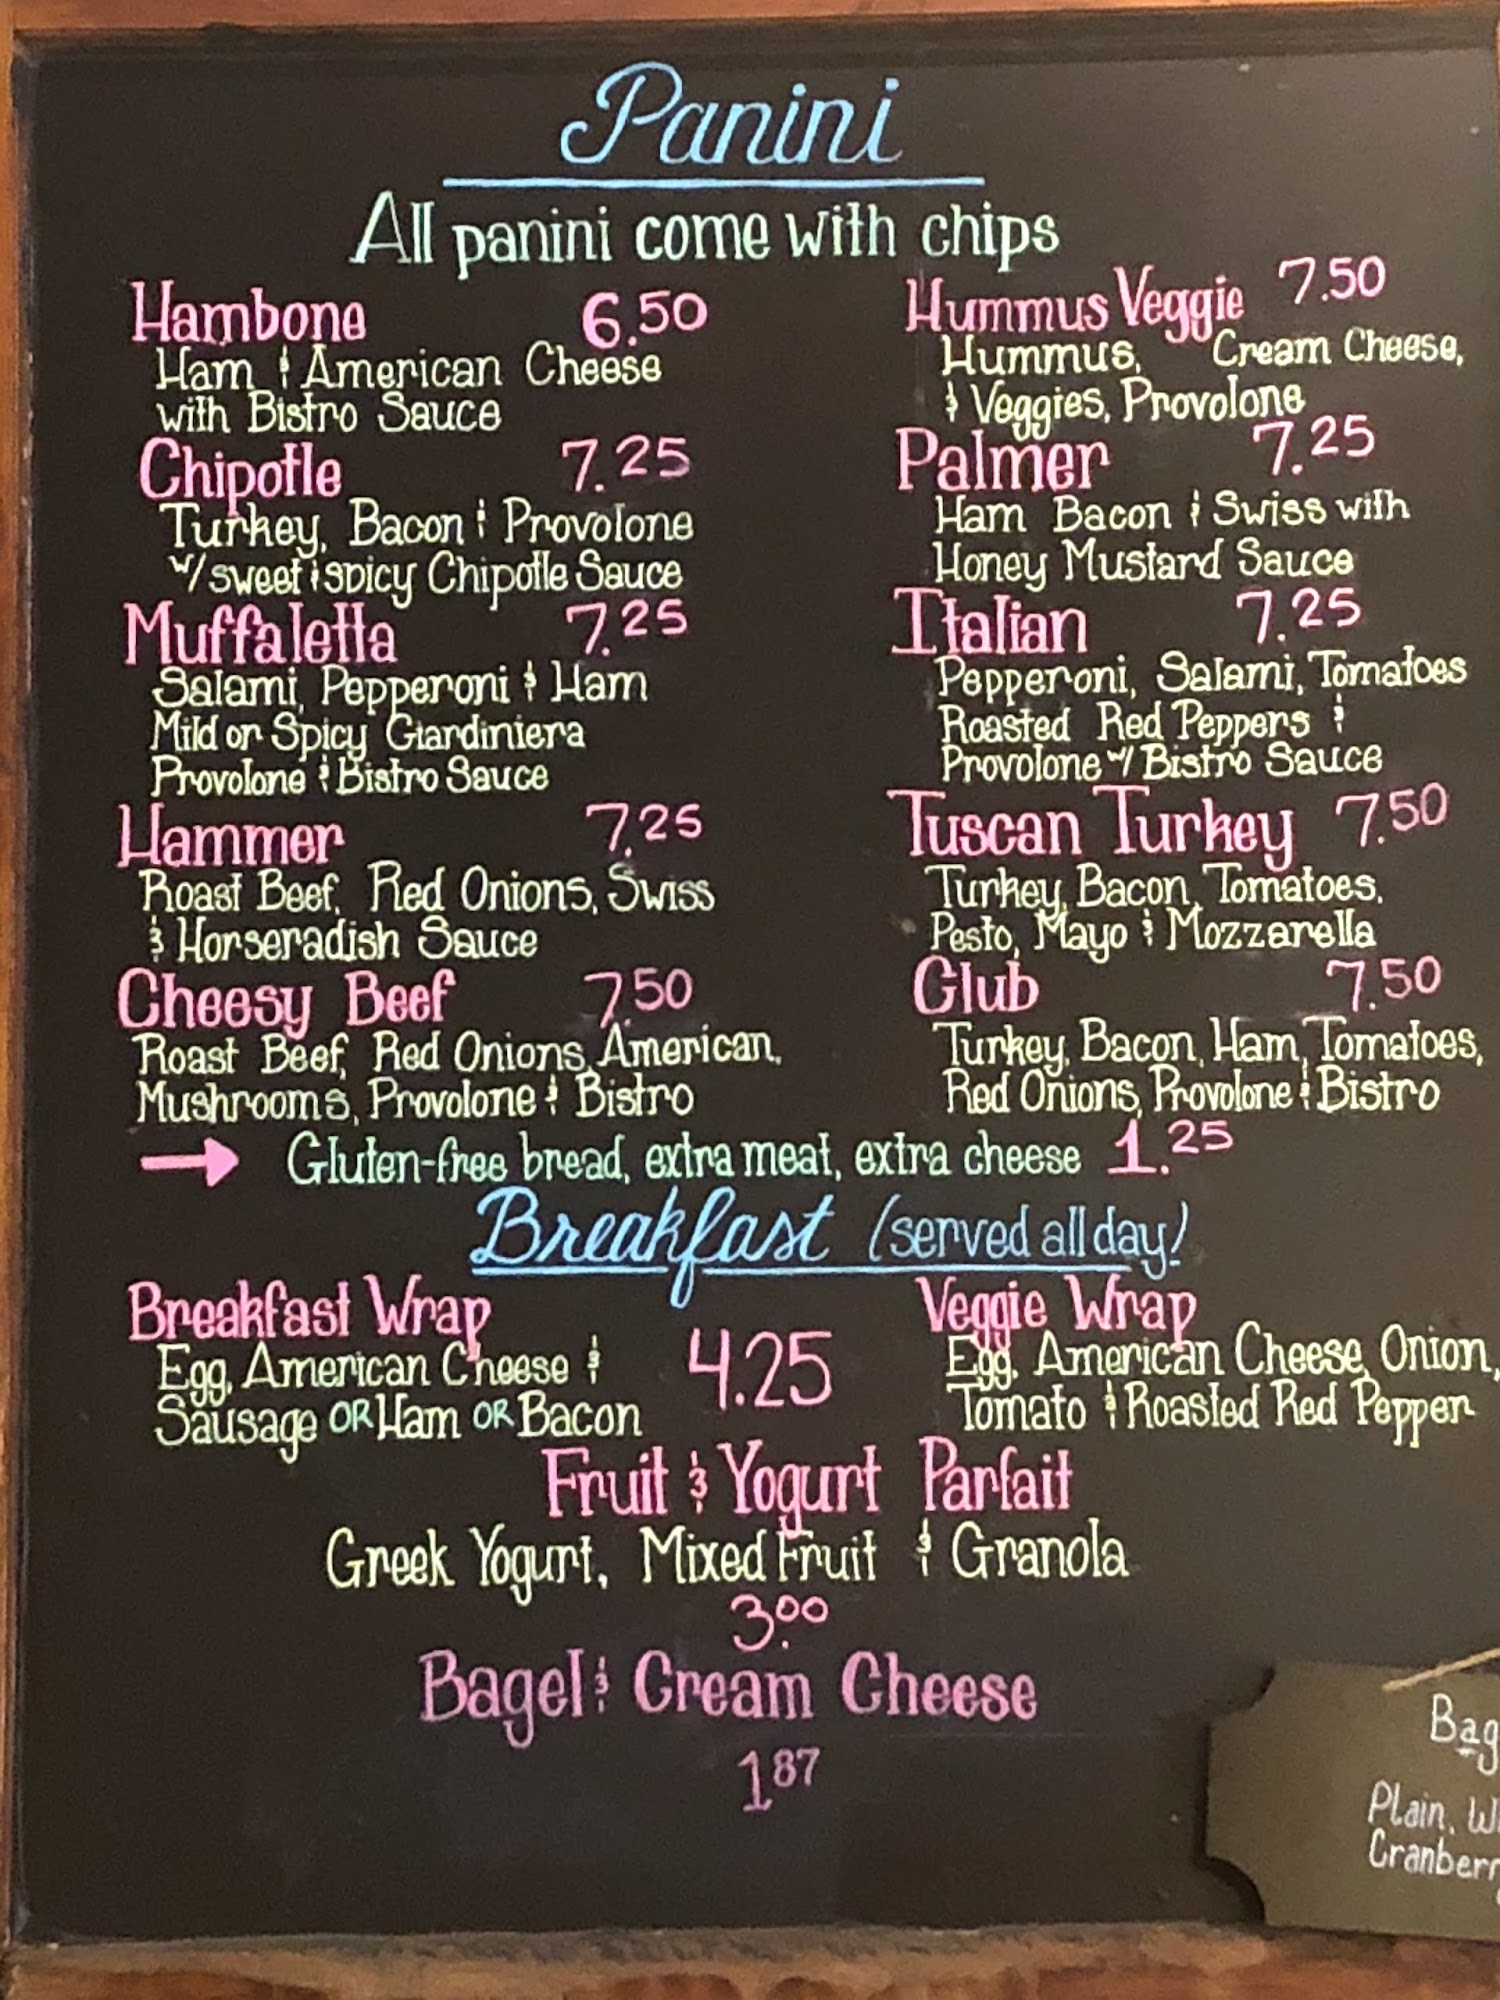 Panini
All panini come with chips
Hambone 6.50
Ham & American Cheese
with Bistro Sauce
Chipotle 7.25
Turkey, Bacon & Provolone
w/ sweet & spicy Chipotle Sauce
Muffaletta 7.25
Salami, Pepperoni & Ham
Mild or Spicy Giardiniera
Provolone & Bistro Sauce
Hammer 7.25
Roast Beef, Red Onions, Swiss
& Horseradish Sauce
Cheesy Beef 7.50
Roast Beef, Red Onions, American,
Mushrooms, Provolone & Bistro
Hummus Veggie 7.50
Hummus, Cream Cheese,
& Veggies, Provolone
Palmer 7.25
Ham Bacon & Swiss with
Honey Mustard Sauce
Italian 7.25
Pepperoni, Salami, Tomatoes
Roasted Red Peppers &
Provolone w/ Bistro Sauce
Tuscan Turkey 7.50
Turkey, Bacon, Tomatoes,
Pesto, Mayo & Mozzarella
Club 7.50
Turkey, Bacon, Ham, Tomatoes,
Red Onions, Provolone & Bistro
→ Gluten-free bread, extra meat, extra cheese 1.25
Breakfast (served all day!
Breakfast Wrap
Egg, American Cheese &
Sausage OR Ham OR Bacon
4.25
Veggie Wrap
Egg, American Cheese, Onion,
Tomato & Roasted Red Pepper
Fruit & Yogurt Parfait
Greek Yogurt, Mixed Fruit & Granola
3.00
Bagel & Cream Cheese
1.87
Bag
Plain,
Cranberr